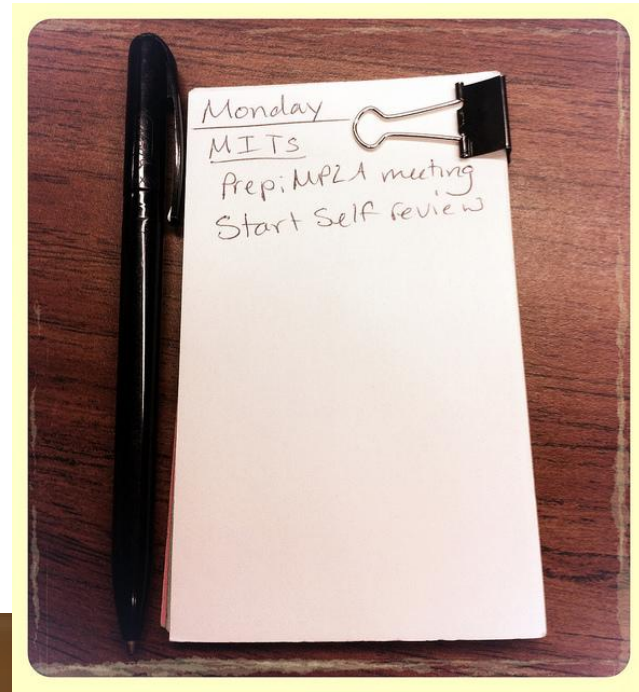 Monday
MITs
Prep: MPLA meeting
Start Self review